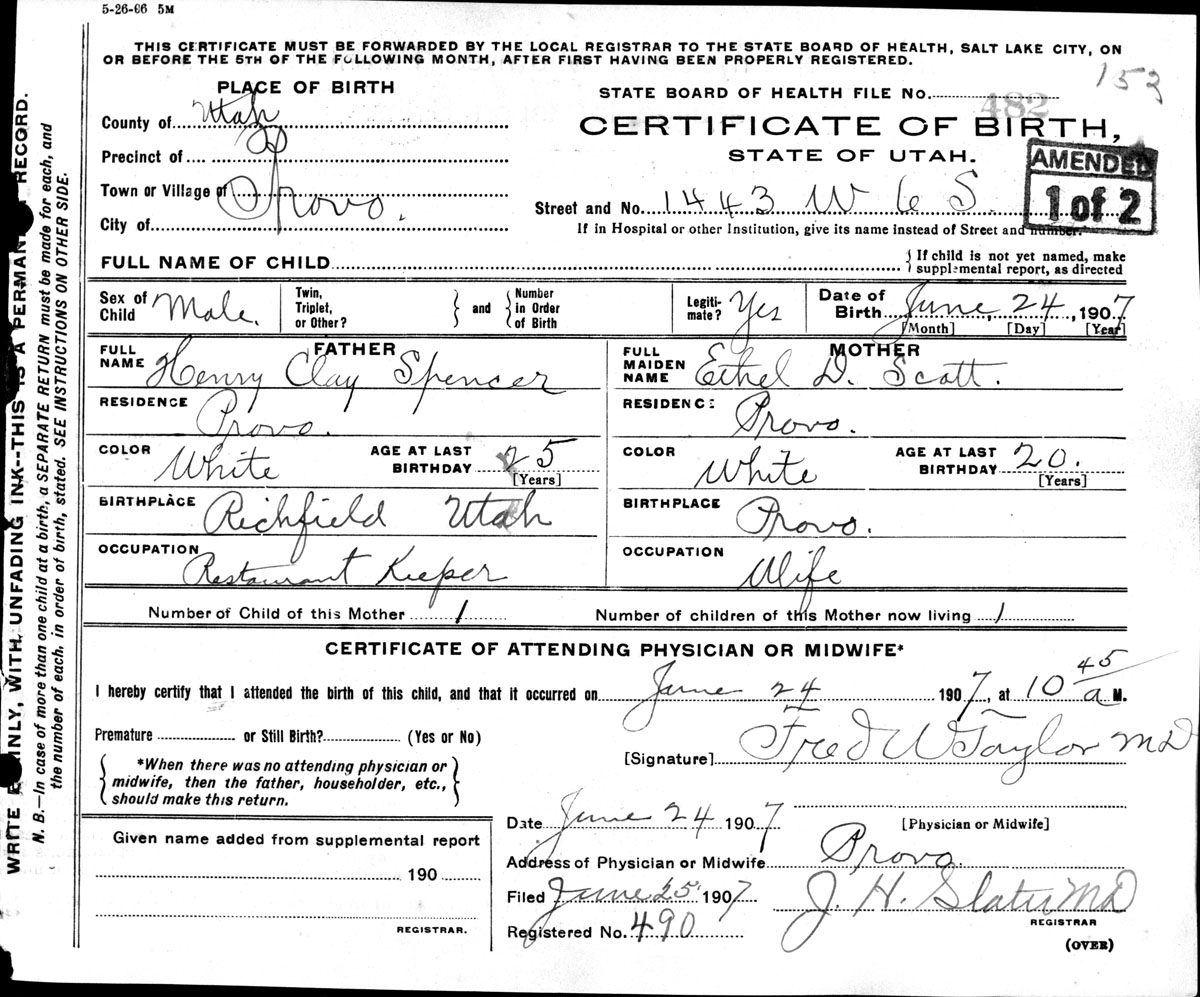 5-26-06 5M
THIS CERTIFICATE MUST BE FORWARDED BY THE LOCAL REGISTRAR TO THE STATE BOARD OF HEALTH, SALT LAKE CITY, ON
OR BEFORE THE 5TH OF THE FOLLOWING MONTH, AFTER FIRST HAVING BEEN PROPERLY REGISTERED.
153
PLACE OF BIRTH
STATE BOARD OF HEALTH FILE NO. 482
County of Utah
CERTIFICATE OF BIRTH,
Precinct of
STATE OF UTAH.
AMENDED
1 of 2
Town or Village of Provo.
Street and No. 1443 W 6 S.
City of
If in Hospital or other Institution, give its name instead of Street and number.
FULL NAME OF CHILD
If child is not yet named, make
supplemental report, as directed
Sex of Child Male.
Twin, Triplet, or Other?
and
Number in Order of Birth
Legiti-mate? Yes
Date of Birth June, 24, 1907
[Month] [Day] [Year]
FATHER
FULL NAME Henry Clay Spencer
MOTHER
FULL MAIDEN NAME Ethel D. Scott.
RESIDENCE Provo.
RESIDENCE Provo.
COLOR White
AGE AT LAST BIRTHDAY 25
[Years]
COLOR White
AGE AT LAST BIRTHDAY 20.
[Years]
BIRTHPLACE Richfield Utah
BIRTHPLACE Provo.
OCCUPATION Restaurant Keeper
OCCUPATION Wife
Number of Child of this Mother 1
Number of children of this Mother now living 1
CERTIFICATE OF ATTENDING PHYSICIAN OR MIDWIFE*
I hereby certify that I attended the birth of this child, and that it occurred on June 24 1907, at 10 45 a M.
Premature or Still Birth? (Yes or No)
[Signature] Fred W Taylor MD
*When there was no attending physician or
midwife, then the father, householder, etc.,
should make this return.
Date June 24 1907
[Physician or Midwife]
Given name added from supplemental report
190
REGISTRAR.
Address of Physician or Midwife Provo.
Filed June 25 1907
J. H. Slater MD
REGISTRAR
Registered No. 490
(OVER)
WRITE PLAINLY, WITH UNFADING INK--THIS IS A PERMANENT RECORD.
N. B.—In case of more than one child at a birth, a SEPARATE RETURN must be made for each, and
the number of each, in order of birth, stated. SEE INSTRUCTIONS ON OTHER SIDE.